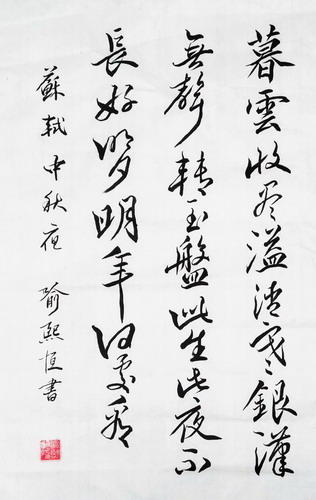 暮雲收尽溢清寒銀漢
無聲轉玉盤此生此夜不
長好明月明年何處看
蘇軾中秋夜 喻熙恒書